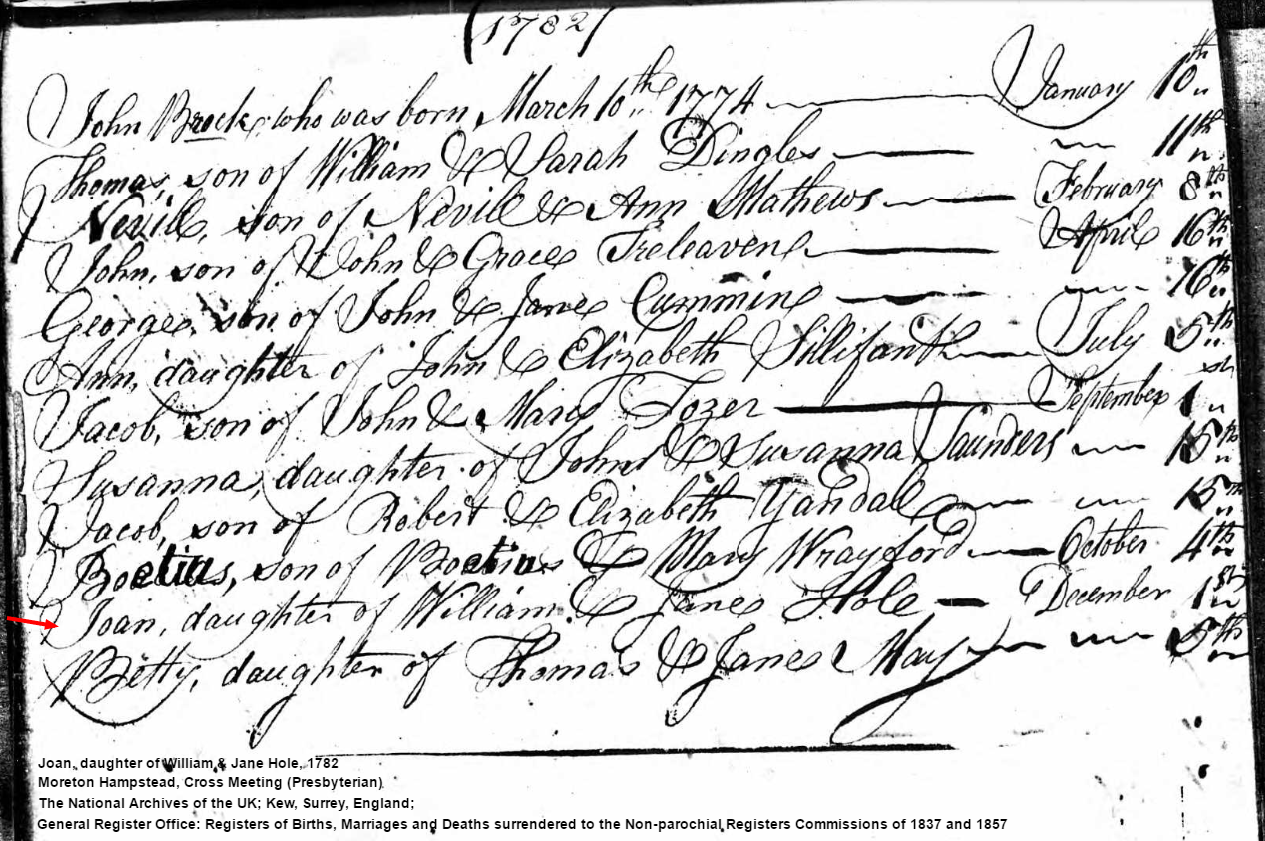 (1782)
John Brock, who was born March 10th 1774 — January 10th
Thomas, son of William & Sarah Dingles — — 11th
Nevill, son of Nevill & Ann Mathews — February 8th
John, son of John & Grace Treleaven — April 16th
George, son of John & Jane Cummin — — 16th
Ann, daughter of John & Elizabeth Sillifant — July 5th
Jacob, son of John & Mary Tozer — September 1st
Susanna, daughter of John & Susanna Saunders — 15th
Jacob, son of Robert & Elizabeth Yandal — — 15th
Boetius, son of Boetius & Mary Wrayford — October 4th
Joan, daughter of William & Jane Hole — December 1st
Betty, daughter of Thomas & Jane May — — 5th
Joan, daughter of William & Jane Hole, 1782
Moreton Hampstead, Cross Meeting (Presbyterian)
The National Archives of the UK; Kew, Surrey, England;
General Register Office: Registers of Births, Marriages and Deaths surrendered to the Non-parochial Registers Commissions of 1837 and 1857